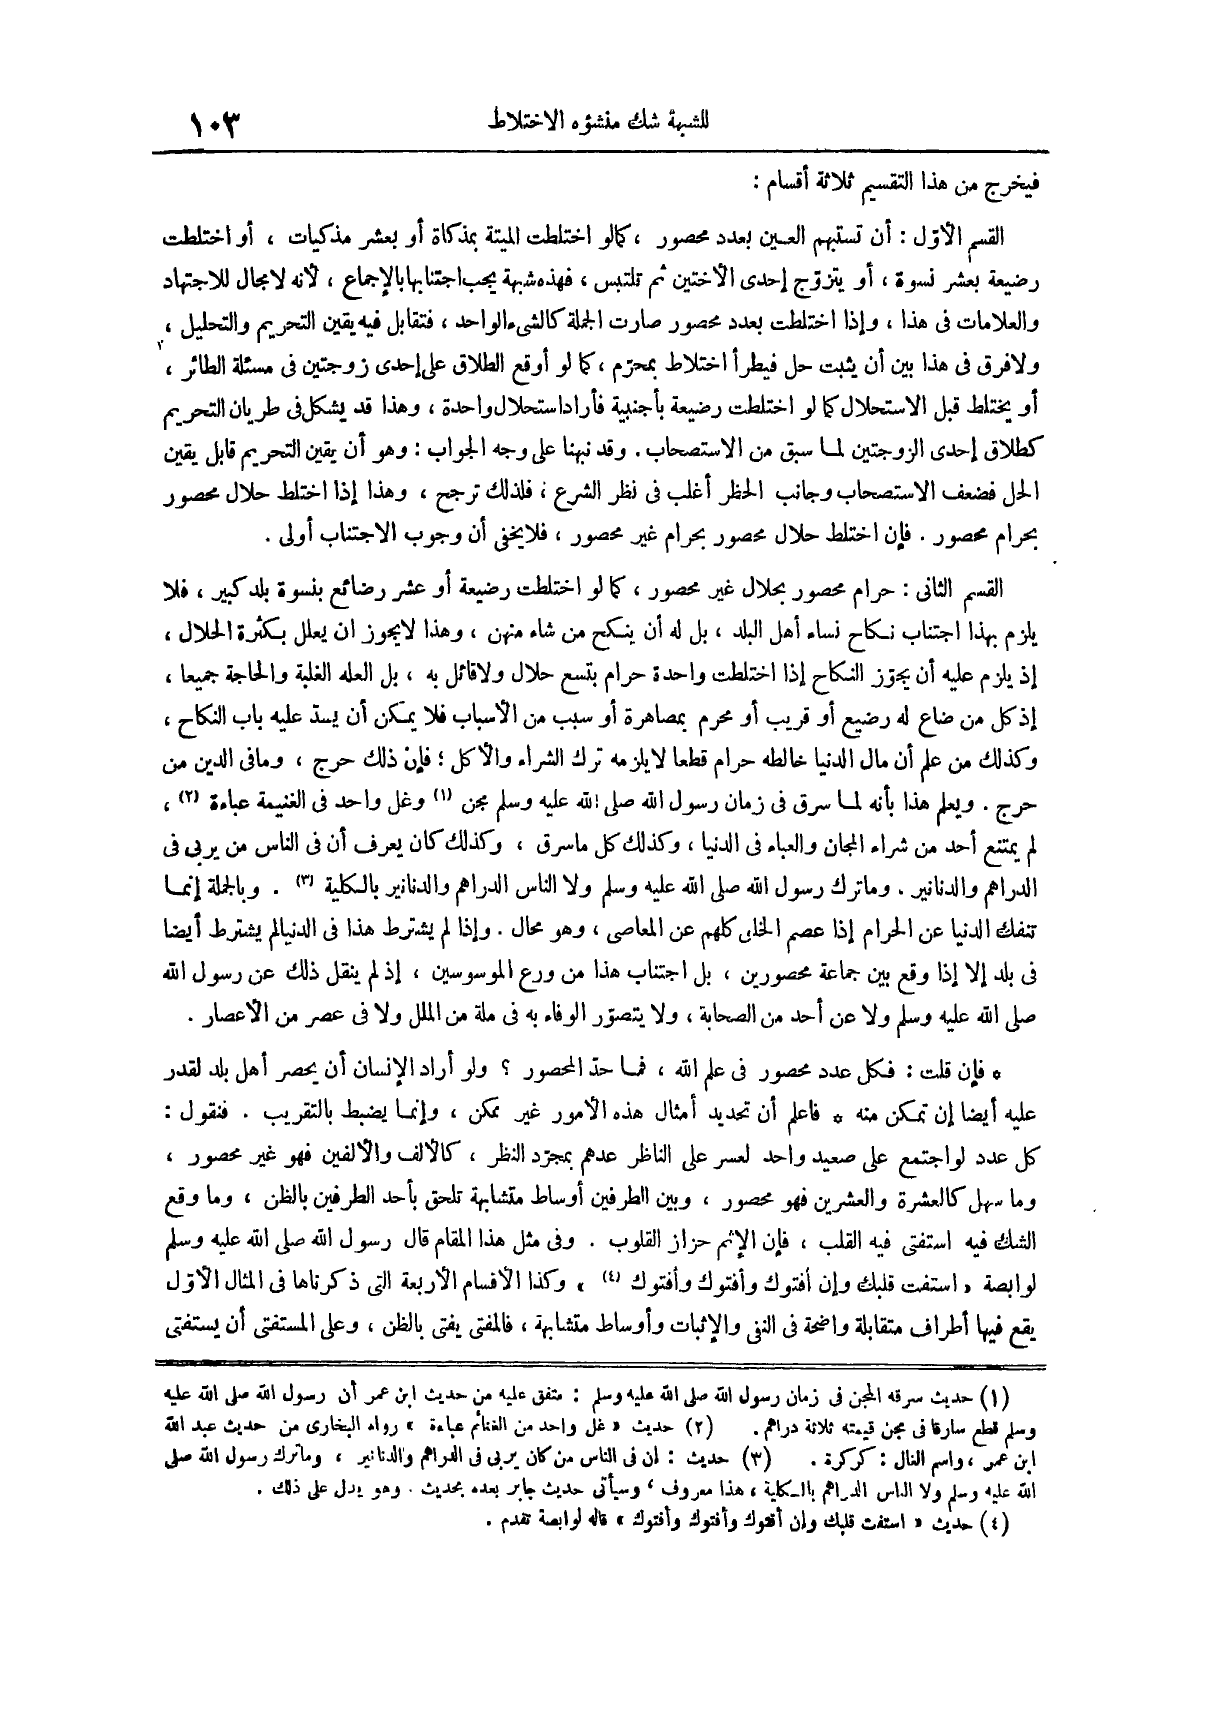 للشبهة شك منشؤه الاختلاط
١٠٣
فيخرج من هذا التقسيم ثلاثة أقسام :
القسم الأوّل : أن تستبهم العين بعدد محصور ، كمالو اختلطت الميتة بمذكاة أو بعشر مذكيات ، أو اختلطت
رضيعة بعشر نسوة ، أو يتزوّج إحدى الأختين ثم تلتبس ، فهذه شبهة يجب اجتنابها بالإجماع ، لأنه لا مجال للاجتهاد
والعلامات فى هذا ، وإذا اختلطت بعدد محصور صارت الجملة كالشىء الواحد ، فتقابل فيه يقين التحريم والتحليل ،
ولافرق فى هذا بين أن يثبت حل فيطرأ اختلاط بمحرّم ، كما لو أوقع الطلاق على إحدى زوجتين فى مسئلة الطائر ،
أو يختلط قبل الاستحلال كما لو اختلطت رضيعة بأجنبية فأراد استحلال واحدة ، وهذا قد يشكل فى طريان التحريم
كطلاق إحدى الزوجتين لما سبق من الاستصحاب . وقد نبهنا على وجه الجواب : وهو أن يقين التحريم قابل يقين
الحل فضعف الاستصحاب وجانب الحظر أغلب فى نظر الشرع ؛ فلذلك ترجح ، وهذا إذا اختلط حلال محصور
بحرام محصور . فإن اختلط حلال محصور بحرام غير محصور ، فلايخفى أن وجوب الاجتناب أولى .
القسم الثانى : حرام محصور بحلال غير محصور ، كما لو اختلطت رضيعة أو عشر رضائع بنسوة بلد كبير ، فلا
يلزم بهذا اجتناب نكاح نساء أهل البلد ، بل له أن ينكح من شاء منهن ، وهذا لايجوز ان يعلل بكثرة الحلال ،
إذ يلزم عليه أن يجوّز النكاح إذا اختلطت واحدة حرام بتسع حلال ولاقائل به ، بل العله الغلبة والحاجة جميعا ،
إذ كل من ضاع له رضيع أو قريب أو محرم بمصاهرة أو سبب من الأسباب فلا يمكن أن يسدّ عليه باب النكاح ،
وكذلك من علم أن مال الدنيا خالطه حرام قطعا لايلزمه ترك الشراء والأكل ؛ فإن ذلك حرج ، ومافى الدين من
حرج . ويعلم هذا بأنه لما سرق فى زمان رسول الله صلى الله عليه وسلم مجن (١) وغل واحد فى الغنيمة عباءة (٢) ،
لم يمتنع أحد من شراء المجان والعباء فى الدنيا ، وكذلك كل ماسرق ، وكذلك كان يعرف أن فى الناس من يربى فى
الدراهم والدنانير . وماترك رسول الله صلى الله عليه وسلم ولا الناس الدراهم والدنانير بالكلية (٣) . وبالجملة إنما
تنفك الدنيا عن الحرام إذا عصم الخلق كلهم عن المعاصى ، وهو محال . وإذا لم يشترط هذا فى الدنيالم يشترط أيضا
فى بلد إلا إذا وقع بين جماعة محصورين ، بل اجتناب هذا من ورع الموسوسين ، إذ لم ينقل ذلك عن رسول الله
صلى الله عليه وسلم ولا عن أحد من الصحابة ، ولا يتصوّر الوفاء به فى ملة من الملل ولا فى عصر من الأعصار .
* فإن قلت : فكل عدد محصور فى علم الله ، فما حدّ المحصور ؟ ولو أراد الإنسان أن يحصر أهل بلد لقدر
عليه أيضا إن تمكن منه * فاعلم أن تحديد أمثال هذه الأمور غير ممكن ، وإنما يضبط بالتقريب . فنقول :
كل عدد لو اجتمع على صعيد واحد لعسر على الناظر عدهم بمجرّد النظر ، كالألف والألفين فهو غير محصور ،
وما سهل كالعشرة والعشرين فهو محصور ، وبين الطرفين أوساط متشابهة تلحق بأحد الطرفين بالظن ، وما وقع
الشك فيه استفتى فيه القلب ، فإن الإثم حزاز القلوب . وفى مثل هذا المقام قال رسول الله صلى الله عليه وسلم
لوابصة « استفت قلبك وإن أفتوك وأفتوك وأفتوك (٤) » وكذا الأقسام الأربعة التى ذكرناها فى المثال الأوّل
يقع فيها أطراف متقابلة واضحة فى النفى والإثبات وأوساط متشابهة ، فالمفتى يفتى بالظن ، وعلى المستفتى أن يستفتى
(١) حديث سرقه المجن فى زمان رسول الله صلى الله عليه وسلم : متفق عليه من حديث ابن عمر أن رسول الله صلى الله عليه
وسلم قطع سارقا فى مجن قيمته ثلاثة دراهم . (٢) حديث « غل واحد من الغنائم عباءة » رواه البخارى من حديث عبد الله
ابن عمر ، واسم الغال : كركرة . (٣) حديث : ان فى الناس من كان يربى فى الدراهم والدنانير ، وماترك رسول الله صلى
الله عليه وسلم ولا الناس الدراهم بالكلية ، هذا معروف ، وسيأتى حديث جابر بعده بحديث . وهو يدل على ذلك .
(٤) حديث « استفت قلبك وإن أفتوك وأفتوك وأفتوك » قاله لوابصة تقدم .